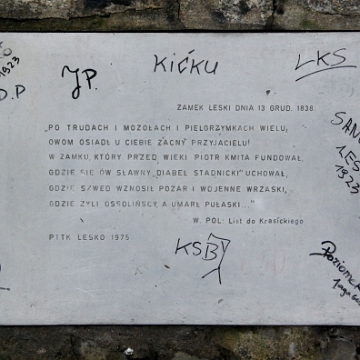 KIĆKU
LKS
JP.
1923
D.P
ZAMEK LESKI DNIA 13 GRUD. 1838.
"PO TRUDACH I MOZOŁACH I PIELGRZYMKACH WIELU,
OWOM OSIADŁ U CIEBIE ZACNY PRZYJACIELU!
W ZAMKU, KTÓRY PRZED WIEKI PIOTR KMITA FUNDOWAŁ,
GDZIE SIĘ ÓW SŁAWNY „DIABEŁ STADNICKI" UCHOWAŁ,
GDZIE SZWED WZNOSIŁ POŻAR I WOJENNE WRZASKI,
GDZIE ŻYLI OSSOLIŃSCY, A UMARŁ PUŁASKI..."
W. POL: List do Krasickiego
PTTK LESKO 1975.
SAN
LES
1923
KSB